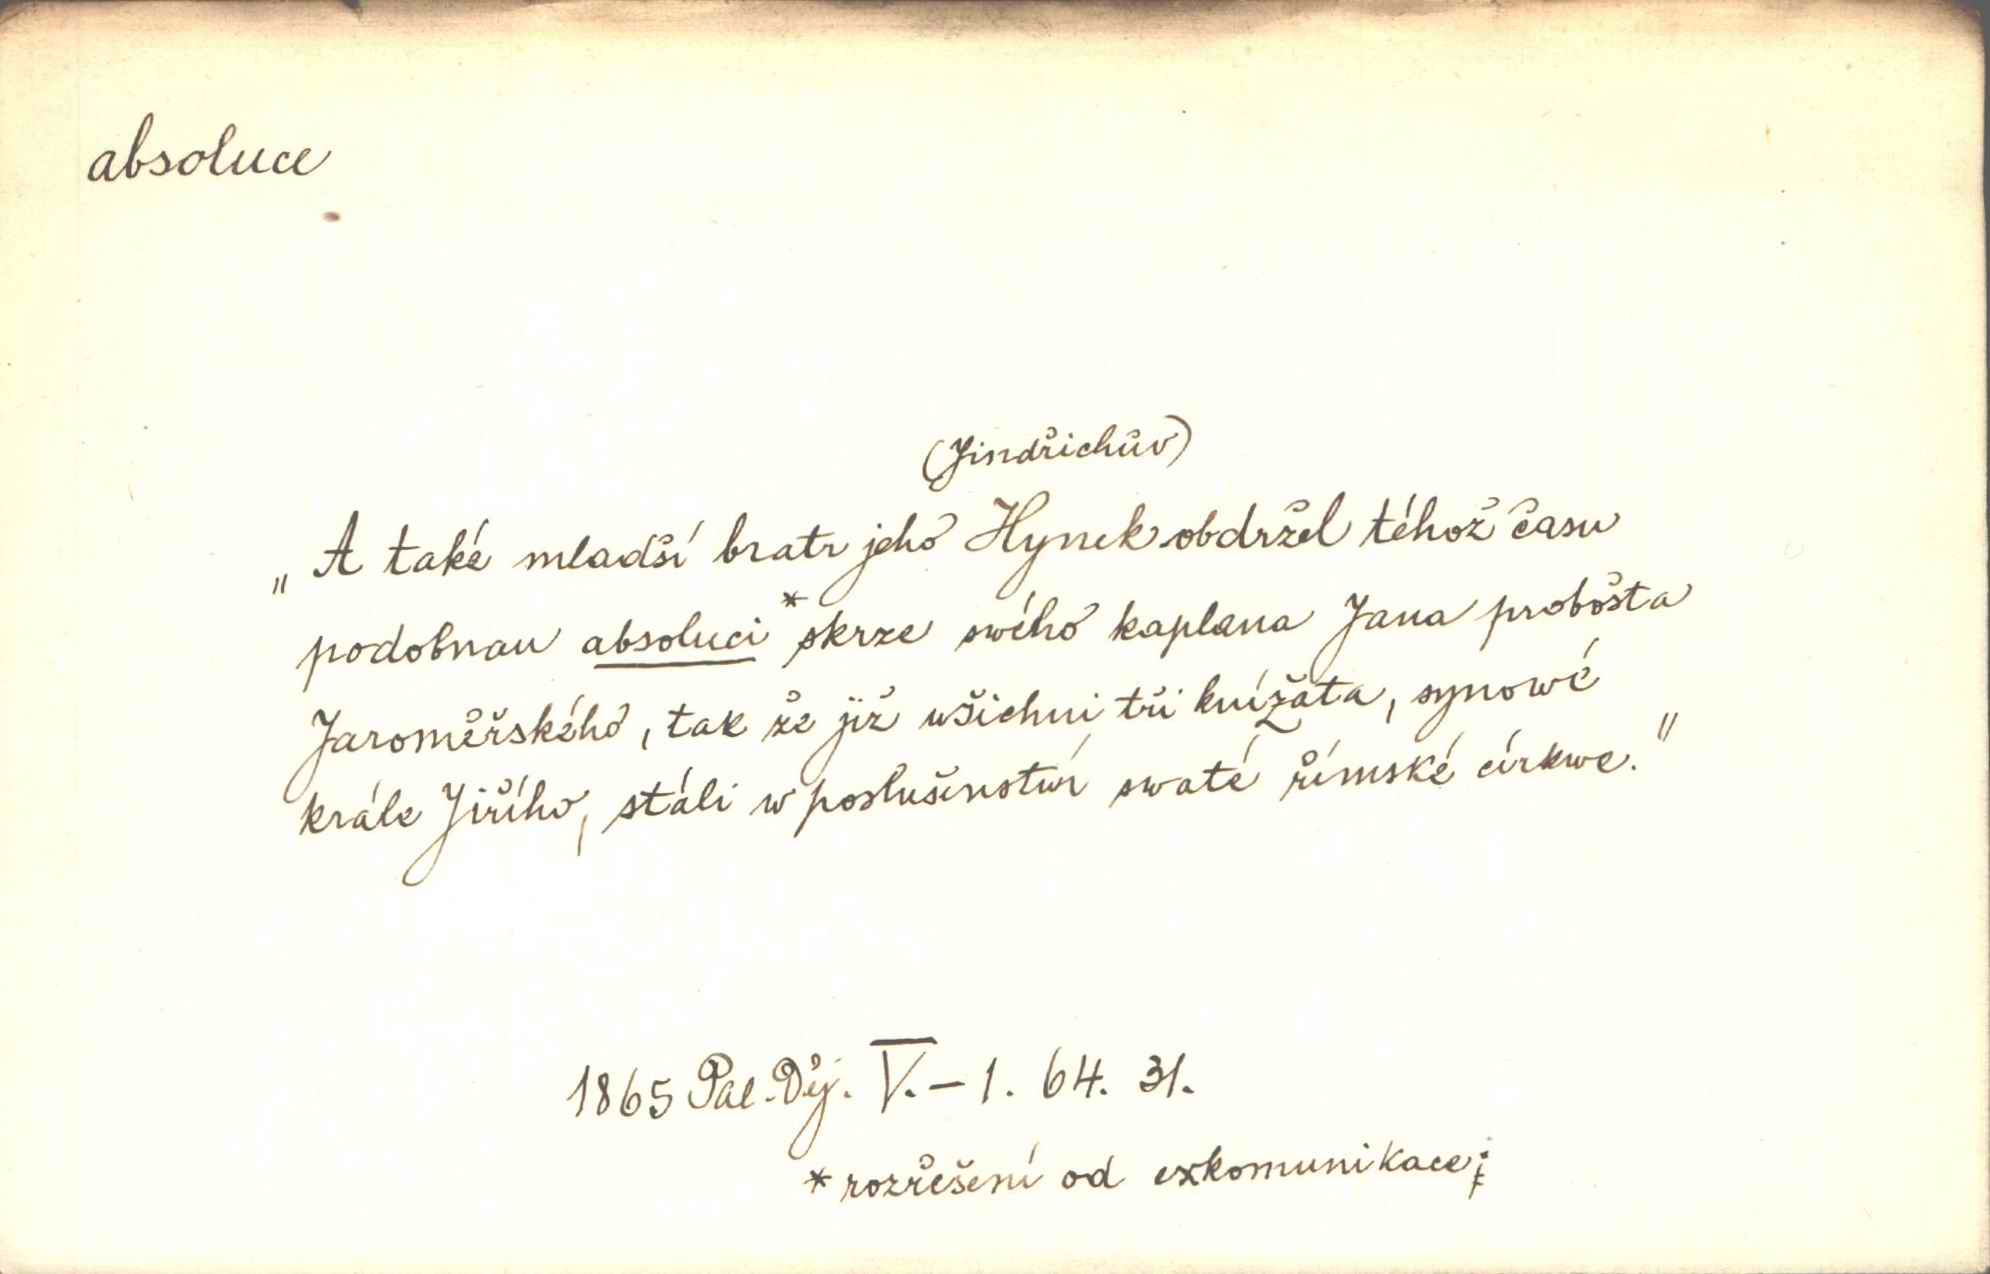 absoluce
(Jindřichův)
„A také mladší bratr jeho Hynek obdržel téhož času
podobnau absoluci* skrze swého kaplana Jana probošta
Jaroměřského, tak že již wšichni tři knížata, synowé
krále Jiřího, stáli w poslušenstwí swaté římské církwe."
1865 Pal. Děj. V. – 1. 64. 31.
* rozřešení od exkomunikace;